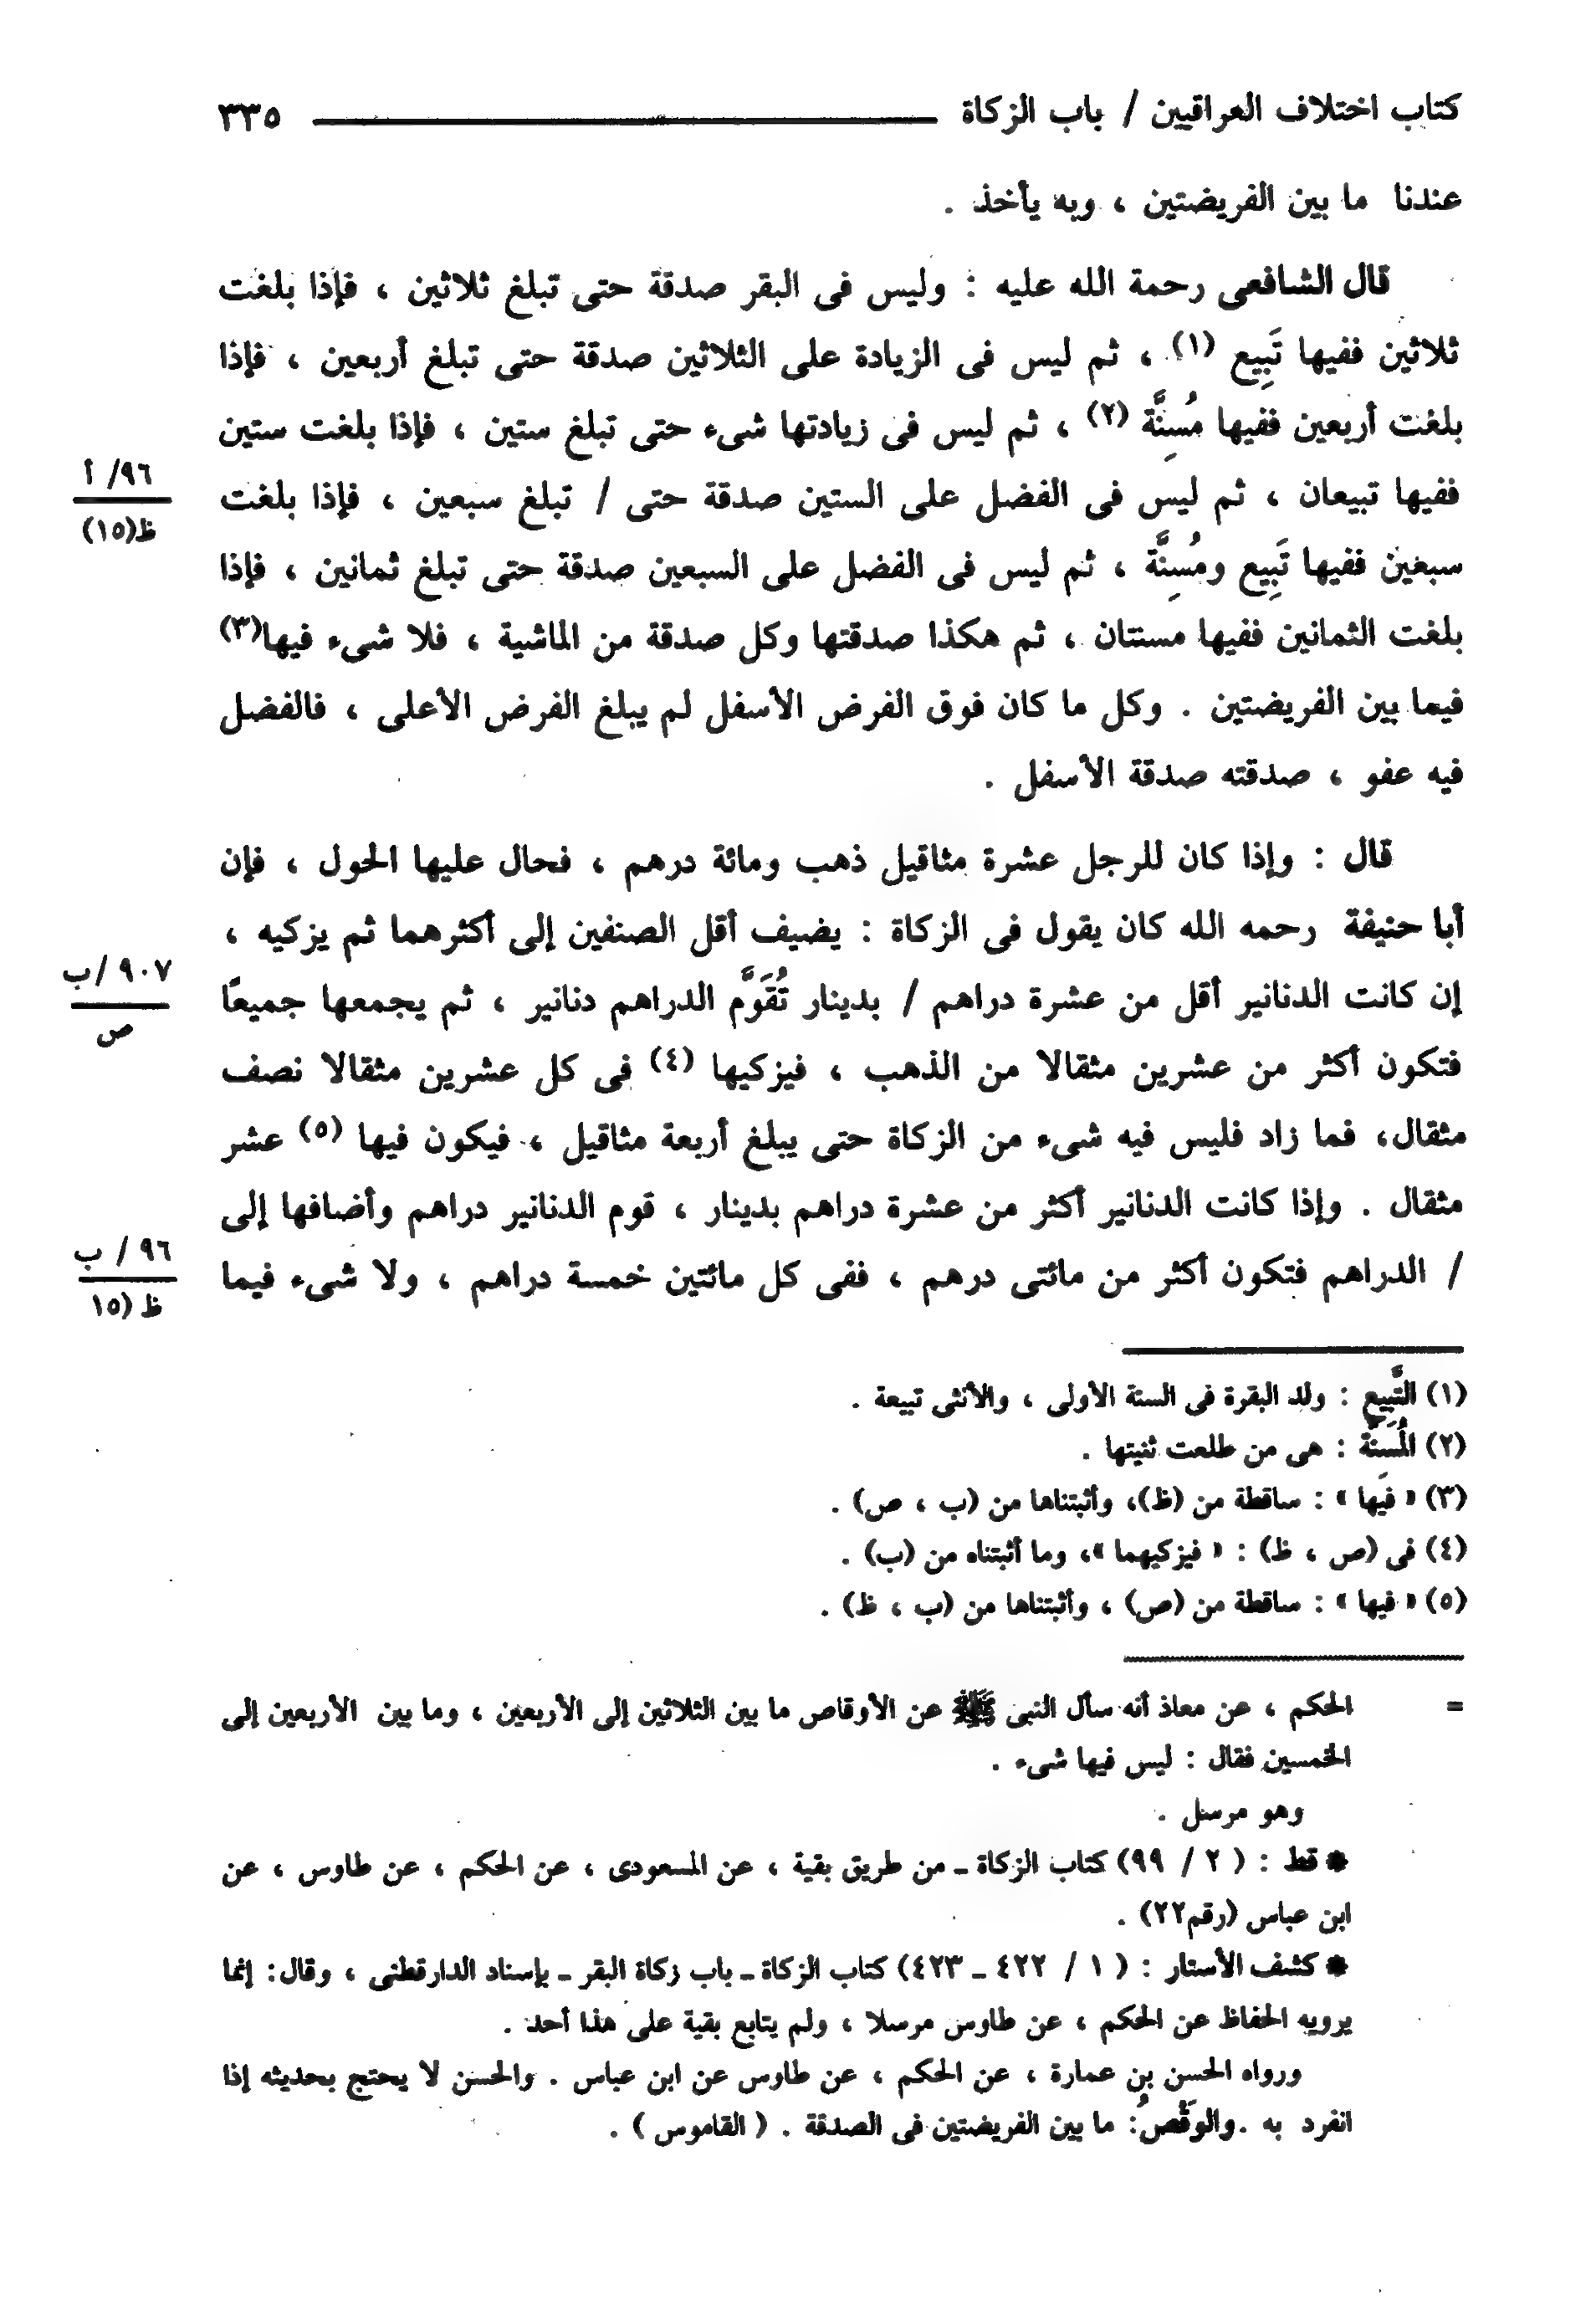 كتاب اختلاف العراقيين / باب الزكاة ٣٣٥
عندنا ما بين الفريضتين ، وبه يأخذ .
قال الشافعى رحمة الله عليه : وليس فى البقر صدقة حتى تبلغ ثلاثين ، فإذا بلغت
ثلاثين ففيها تَبِيع (١) ، ثم ليس فى الزيادة على الثلاثين صدقة حتى تبلغ أربعين ، فإذا
بلغت أربعين ففيها مُسِنَّة (٢) ، ثم ليس فى زيادتها شىء حتى تبلغ ستين ، فإذا بلغت ستين
ففيها تبيعان ، ثم ليس فى الفضل على الستين صدقة حتى / تبلغ سبعين ، فإذا بلغت
٩٦/ أ
ظ(١٥)
سبعين ففيها تَبِيع ومُسِنَّة ، ثم ليس فى الفضل على السبعين صدقة حتى تبلغ ثمانين ، فإذا
بلغت الثمانين ففيها مسنتان ، ثم هكذا صدقتها وكل صدقة من الماشية ، فلا شىء فيها(٣)
فيما بين الفريضتين . وكل ما كان فوق الفرض الأسفل لم يبلغ الفرض الأعلى ، فالفضل
فيه عفو ، صدقته صدقة الأسفل .
قال : وإذا كان للرجل عشرة مثاقيل ذهب ومائة درهم ، فحال عليها الحول ، فإن
أبا حنيفة رحمه الله كان يقول فى الزكاة : يضيف أقل الصنفين إلى أكثرهما ثم يزكيه ،
إن كانت الدنانير أقل من عشرة دراهم / بدينار تُقَوَّم الدراهم دنانير ، ثم يجمعها جميعًا
٩٠٧ /ب
ص
فتكون أكثر من عشرين مثقالا من الذهب ، فيزكيها (٤) فى كل عشرين مثقالا نصف
مثقال، فما زاد فليس فيه شىء من الزكاة حتى يبلغ أربعة مثاقيل ، فيكون فيها (٥) عشر
مثقال . وإذا كانت الدنانير أكثر من عشرة دراهم بدينار ، قوم الدنانير دراهم وأضافها إلى
/ الدراهم فتكون أكثر من مائتى درهم ، ففى كل مائتين خمسة دراهم ، ولا شىء فيما
٩٦ / ب
ظ (١٥
(١) التَّبِيع : ولد البقرة فى السنة الأولى ، والأنثى تبيعة .
(٢) المُسِنَّة : هى من طلعت ثنيتها .
(٣) « فيها » : ساقطة من (ظ)، وأثبتناها من (ب ، ص) .
(٤) فى (ص ، ظ) : « فيزكيهما »، وما أثبتناه من (ب) .
(٥) « فيها » : ساقطة من (ص) ، وأثبتناها من (ب ، ظ) .
= الحكم ، عن معاذ أنه سأل النبى ﷺ عن الأوقاص ما بين الثلاثين إلى الأربعين ، وما بين الأربعين إلى
الخمسين فقال : ليس فيها شىء .
وهو مرسل .
* قط : ( ٢ / ٩٩) كتاب الزكاة ـ من طريق بقية ، عن المسعودى ، عن الحكم ، عن طاوس ، عن
ابن عباس (رقم٢٢) .
* كشف الأستار : ( ١ / ٤٢٢ ـ ٤٢٣) كتاب الزكاة ـ باب زكاة البقر ـ بإسناد الدارقطنى ، وقال: إنما
يرويه الحفاظ عن الحكم ، عن طاوس مرسلا ، ولم يتابع بقية على هذا أحد .
ورواه الحسن بن عمارة ، عن الحكم ، عن طاوس عن ابن عباس . والحسن لا يحتج بحديثه إذا
انفرد به .والوَقْصُ: ما بين الفريضتين فى الصدقة . ( القاموس ) .